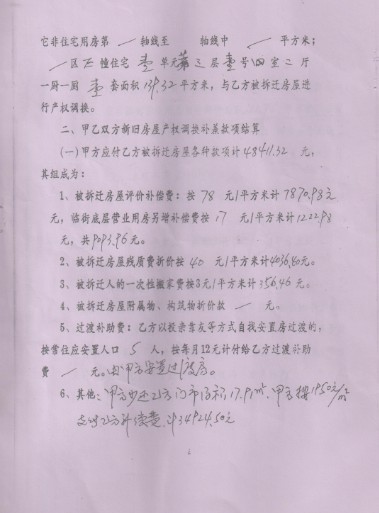 它非住宅用房第 / 轴线至 轴线中 / 平方米；
/ 区 左 幢住宅 壹 单元 第之层 壹 号 四 室 二 厅
一厨一厕 壹 套面积 139.32 平方米，与乙方被拆迁房屋进
行产权调换。
二、甲乙双方新旧房屋产权调换补差款项结算
(一)甲方应付乙方被拆迁房屋各种款项计 48411.32 元，
其组成为：
1、被拆迁房屋评价补偿费：按 78 元/平方米计 7870.98 元
元，临街底层营业用房另增补偿费按 17 元/平方米计 1222.98
元，共 9093.96 元。
2、被拆迁房屋残质费折价按 40 元/平方米计 4036.40 元。
3、被拆迁人的一次性搬家费按3元/平方米计 356.46 元。
4、被拆迁房屋附属物、构筑物折价款 / 元。
5、过渡补助费：乙方以投亲靠友等方式自找安置房过渡的，
按常住应安置人口 5 人，按每月12元计付给乙方过渡补助
费 / 元。由甲方安置过渡房。
6、其他：甲方少还乙方门市面积17.91m²，甲方按1950元/m²
支付乙方补偿费，计34924.50元